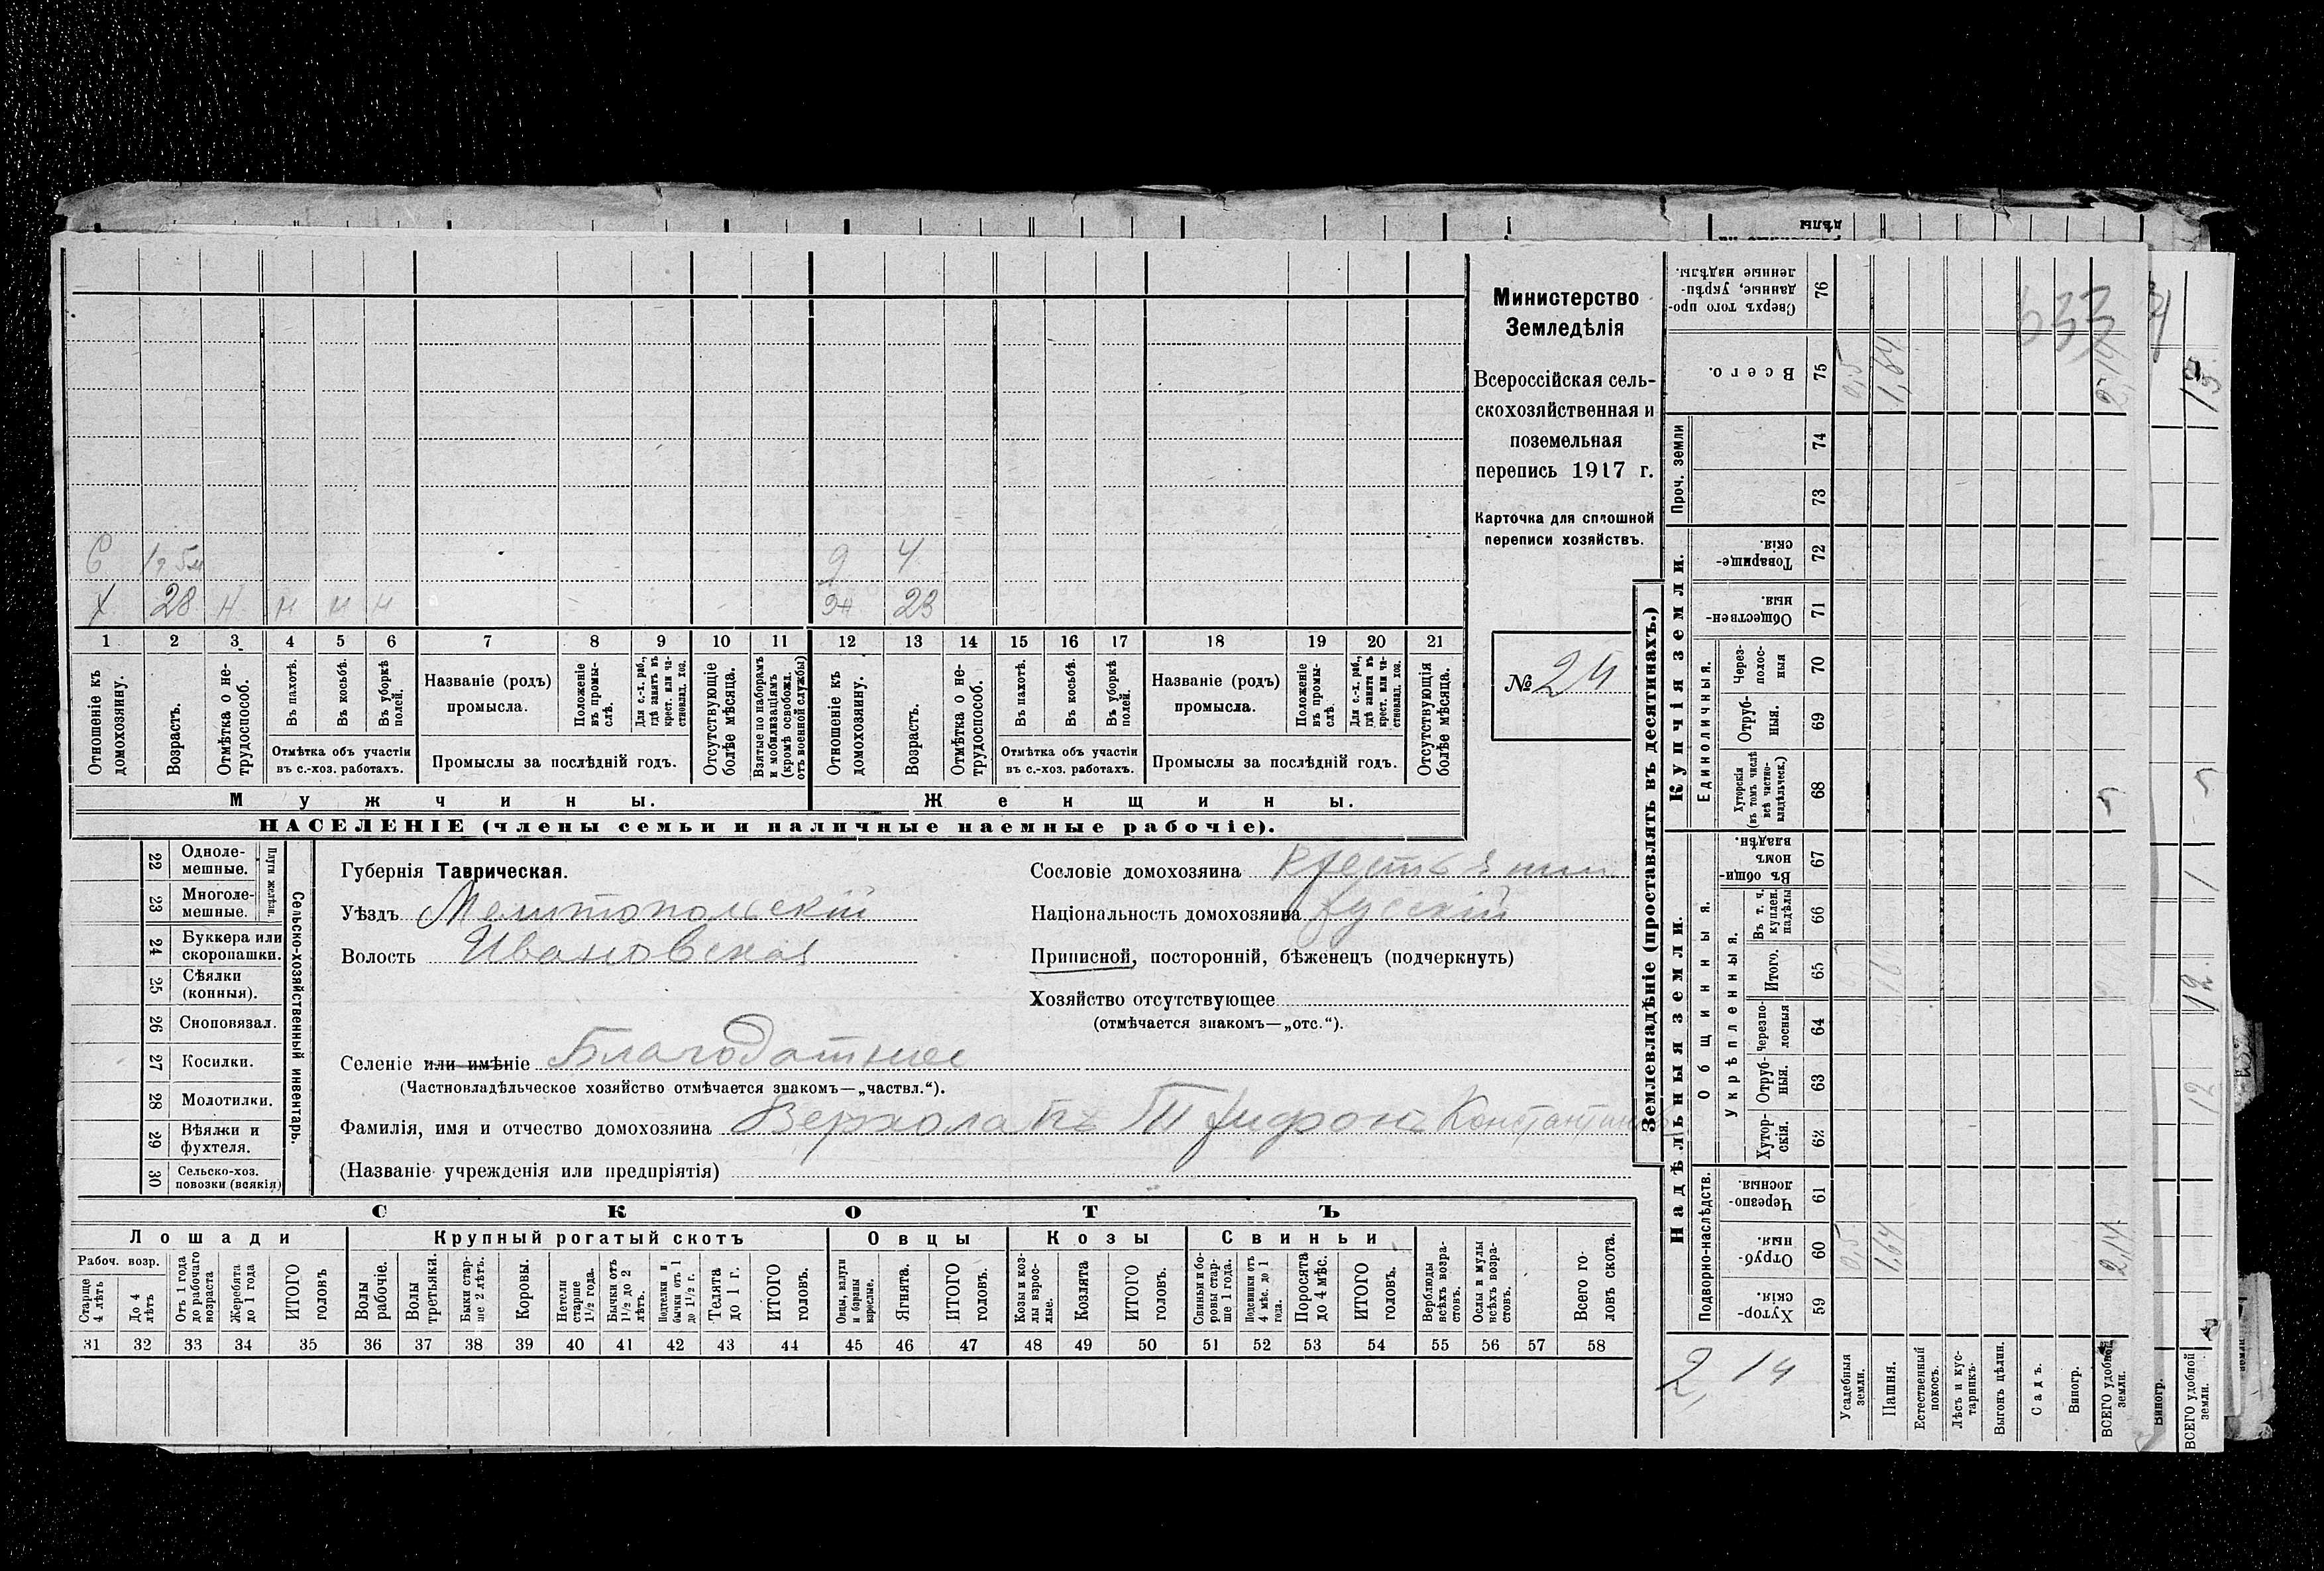 Министерство
Земледѣлія
Всероссійская сель-
скохозяйственная и
поземельная
перепись 1917 г.
Карточка для сплошной
переписи хозяйствъ.
№ 24
С 1 г 5 м д 4
Х 28 Н Н Н Н жн 23
1 2 3 4 5 6 7 8 9 10 11 12 13 14 15 16 17 18 19 20 21
Отношеніе къ домохозяину.
Возрастъ.
Отмѣтка о не-трудоспособ.
Въ пахотѣ.
Въ косьбѣ.
Въ уборкѣ полей.
Отмѣтка объ участіи
въ с.-хоз. работахъ.
Названіе (родъ)
промысла.
Положеніе въ промы-слѣ.
Для с.-х. раб., гдѣ занятъ въ крест. или ча-стновлад. хоз.
Промыслы за послѣдній годъ.
Отсутствующіе болѣе мѣсяца.
Взятые по наборамъ и мобилизаціямъ (кромѣ освобожд. отъ военной службы)
Отношеніе къ домохозяину.
Возрастъ.
Отмѣтка о не-трудоспособ.
Въ пахотѣ.
Въ косьбѣ.
Въ уборкѣ полей.
Отмѣтка объ участіи
въ с.-хоз. работахъ.
Названіе (родъ)
промысла.
Положеніе въ промы-слѣ.
Для с.-х. раб., гдѣ занята въ крест. или ча-стновлад. хоз.
Промыслы за послѣдній годъ.
Отсутствующія болѣе мѣсяца.
Мужчины. Женщины.
НАСЕЛЕНІЕ (члены семьи и наличные наемные рабочіе).
Сельско-хозяйственный инвентарь.
Плуги желѣзн.
22 Одноле-мешные.
23 Многоле-мешные.
24 Буккера или скоропашки.
25 Сѣялки (конныя).
26 Сноповязал.
27 Косилки.
28 Молотилки.
29 Вѣялки и фухтеля.
30 Сельско-хоз. повозки (всякія)
Губернія Таврическая.
Уѣздъ Мелитопольскій
Волость Ивановская
Сословіе домохозяина крестьянин
Національность домохозяина русскій
Приписной, посторонній, бѣженецъ (подчеркнуть)
Хозяйство отсутствующее
(отмѣчается знакомъ—„отс.“).
Селеніе или имѣніе Благодатное
(Частновладѣльческое хозяйство отмѣчается знакомъ—„частвл.“).
Фамилія, имя и отчество домохозяина Трифонъ
(Названіе учрежденія или предпріятія)
СКОТЪ
Лошади Крупный рогатый скотъ Овцы Козы Свиньи
Рабоч. возр.
Старше 4 лѣтъ
До 4 лѣтъ
Отъ 1 года до рабочаго возраста
Жеребята до 1 года
ИТОГО головъ
Волы рабочіе.
Волы третьяки.
Быки стар-ше 2 лѣтъ.
Коровы.
Нетели старше 1½ года.
Бычки отъ 1½ до 2 лѣтъ.
Подтелки и бычки отъ 1 до 1½ г.
Телята до 1 г.
ИТОГО головъ.
Овцы, валухи и бараны взрослые.
Ягнята.
ИТОГО головъ.
Козы и коз-лы взрос-лые.
Козлята
ИТОГО головъ.
Свиньи и бо-ровы стар-ше 1 года.
Подсвинки отъ 4 мѣс. до 1 года.
Поросята до 4 мѣс.
ИТОГО головъ.
Верблюды всѣхъ возра-стовъ.
Ослы и мулы всѣхъ возра-стовъ.
Всего го-ловъ скота.
31 32 33 34 35 36 37 38 39 40 41 42 43 44 45 46 47 48 49 50 51 52 53 54 55 56 57 58
Землевладѣніе (проставлять въ десятинахъ.)
Надѣльныя земли. Купчія земли. Проч. земли
Подворно-наслѣдств. Общинныя. Единоличныя.
Укрѣпленныя.
59 Хутор-скія.
60 Отруб-ныя. 0,5 1,64 2,14
61 Черезпо-лосныя.
62 Хутор-скія.
63 Отруб-ныя.
64 Черезпо-лосныя
65 Итого.
66 Въ т. ч. куплен. надѣлы
67 Въ общин-номъ владѣн.
68 Хуторскія (въ томъ числѣ всѣ частно-владѣльческ.)
69 Отруб-ныя.
70 Через-полос-ныя
71 Обществен-ныя.
72 Товарище-скія.
73
74
75 Всего. 0,5 1,64 2,14
76 Сверхъ того про-данные, укрѣп-ленные надѣлы.
633
2,14
Усадебныя земли.
Пашня.
Естественный покосъ.
Лѣсъ и кус-тарникъ.
Выгонъ цѣлин.
Садъ.
Виногр.
ВСЕГО удобной земли.
Виногр.
ВСЕГО удобной земли.
12
12